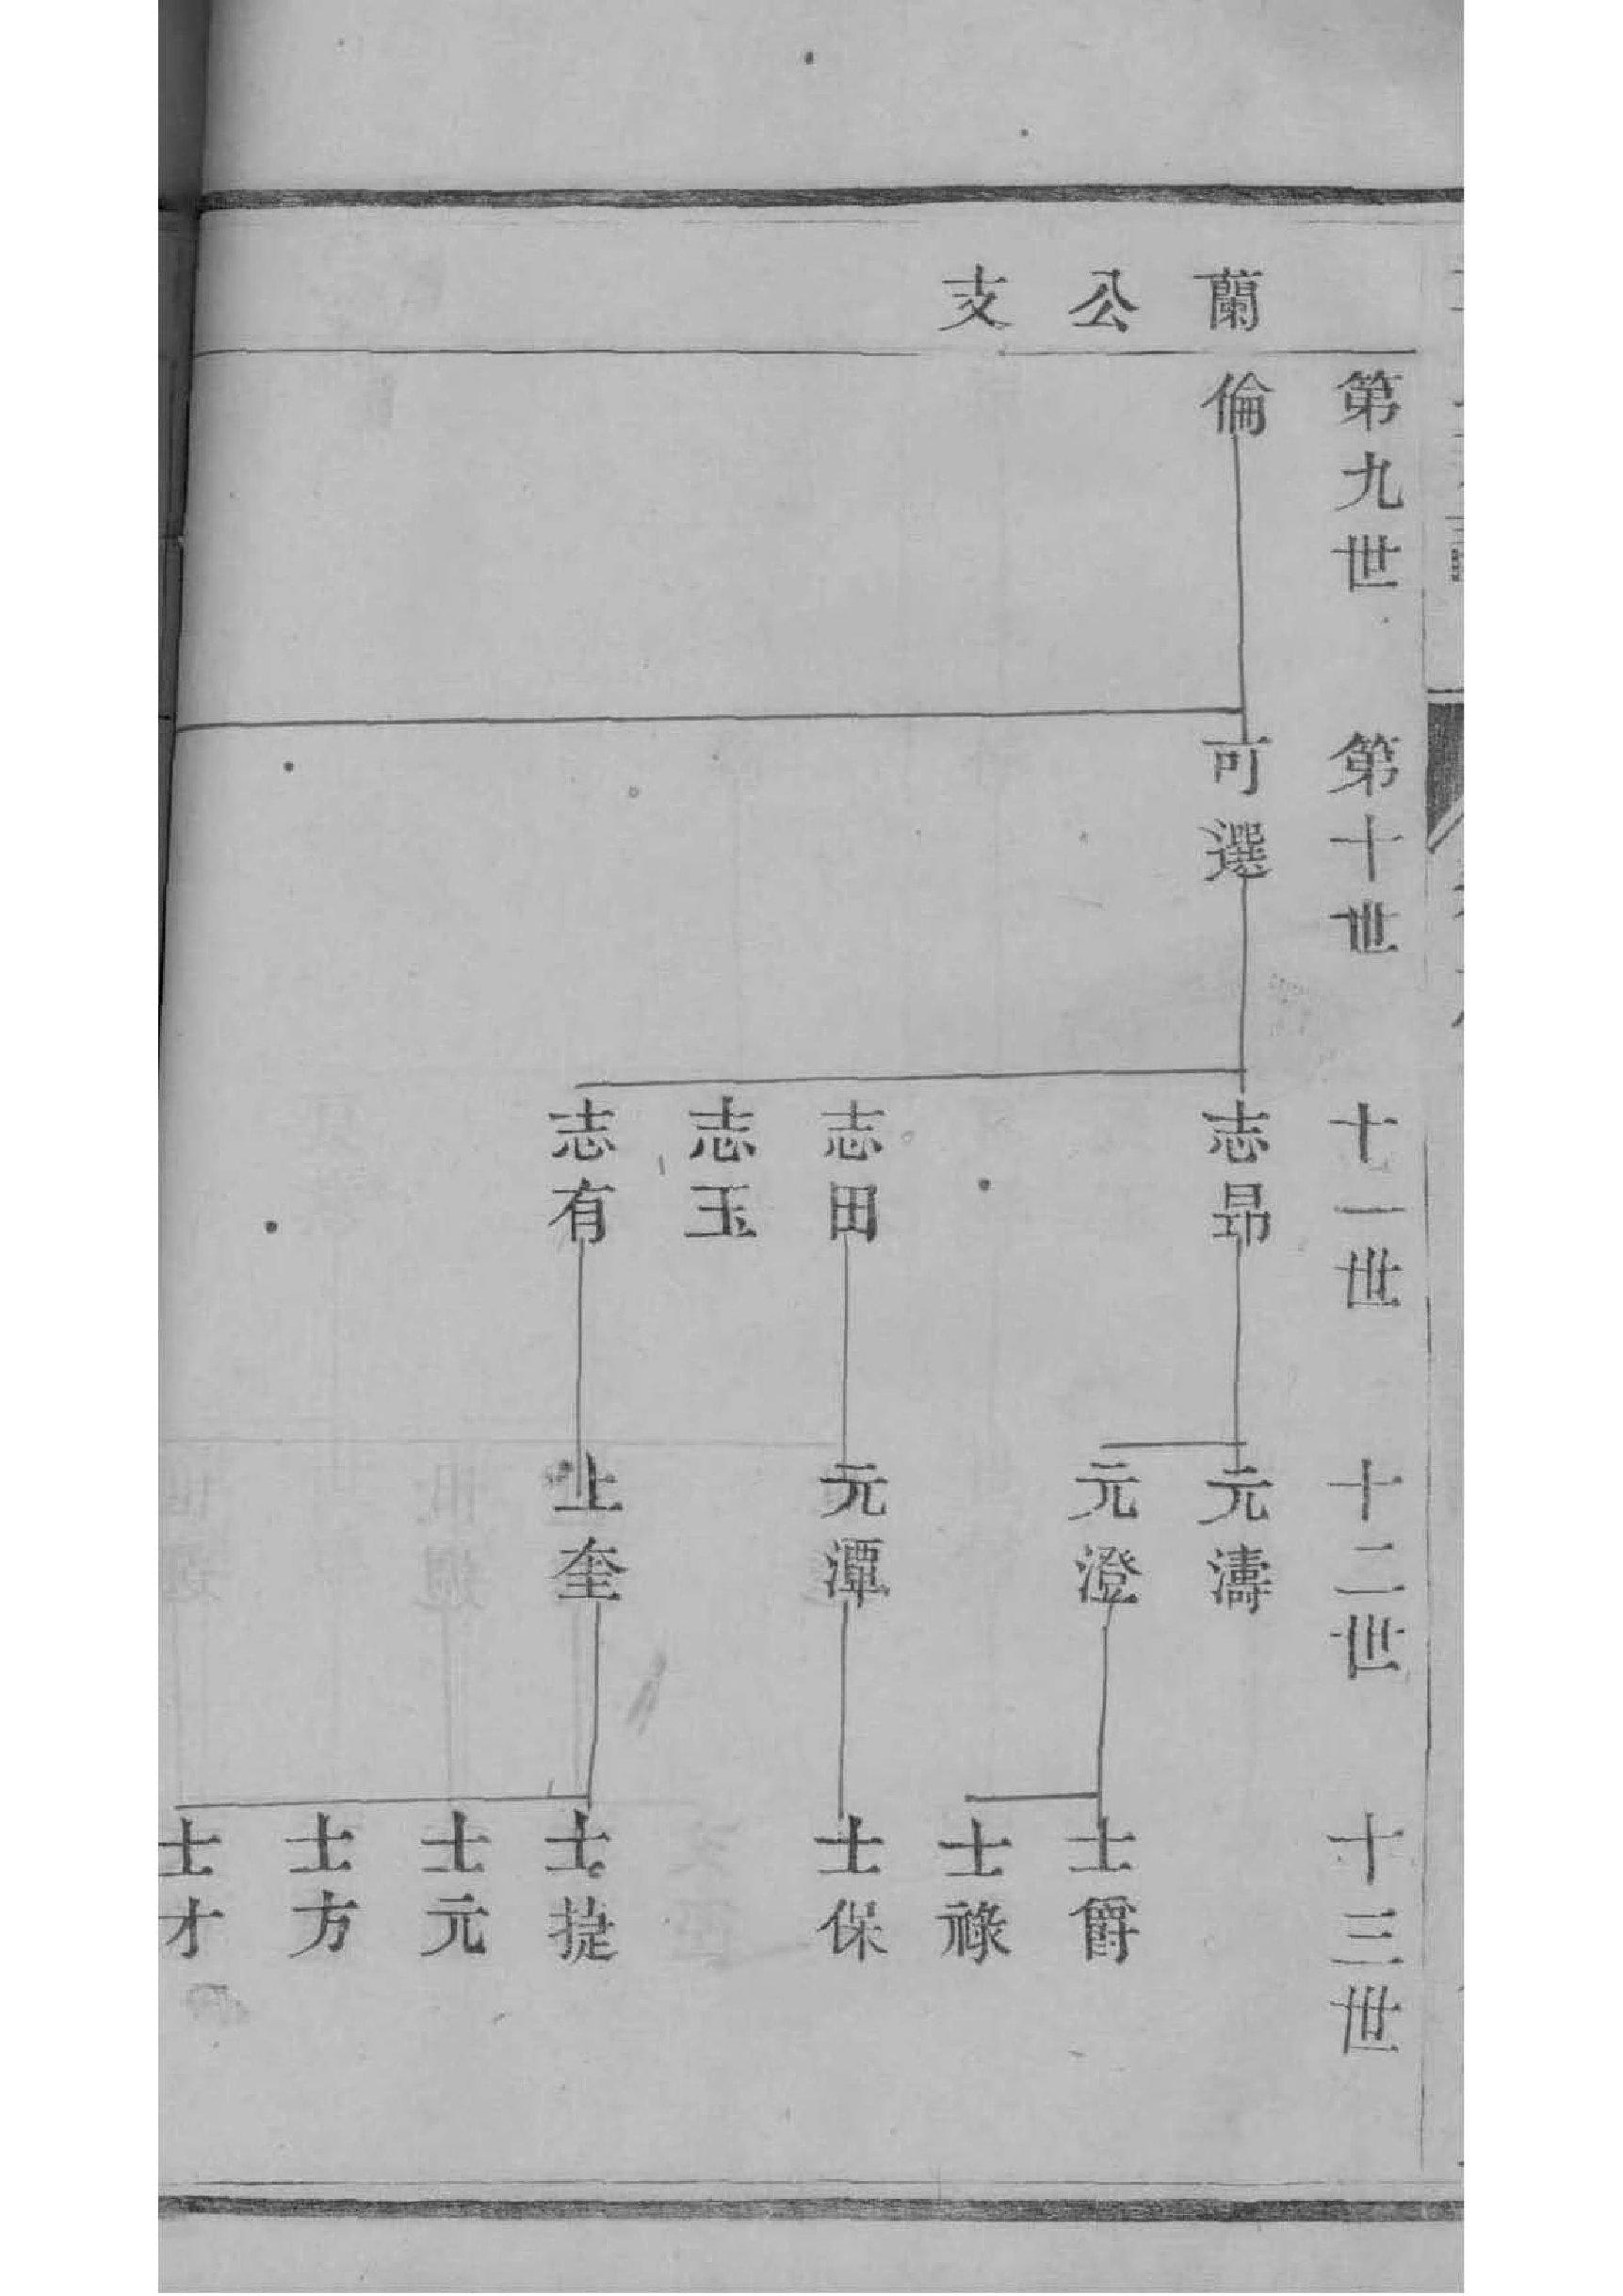 蘭公支
第九世
倫
第十世
可選
十一世
志昂
志田
志玉
志有
十二世
元濤
元澄
元潭
上奎
十三世
士爵
士祿
士保
士捷
士元
士方
士才